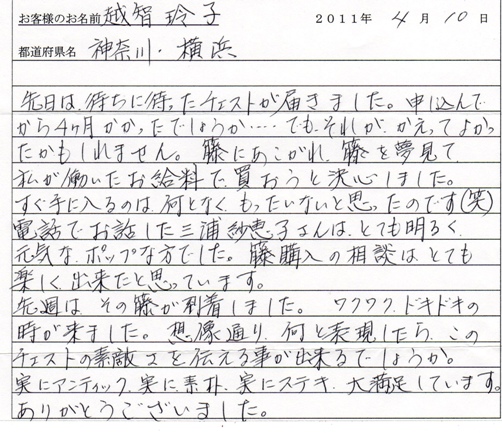 お客様のお名前 越智 玲子 2011年 4月 10日
都道府県名 神奈川・横浜
先日は、待ちに待ったチェストが届きました。申し込んで
から4ヶ月かかったでしょうか‥‥でも、それが、かえってよかっ
たかもしれません。籐にあこがれ、籐を夢見て
私が働いたお給料で、買おうと決心しました。
すぐ手に入るのは、何となく、もったいないと思ったのです(笑)
電話でお話した三浦紗恵子さんは、とても明るく、
元気な、ポップな方でした。籐購入の相談はとても
楽しく出来たと思っています。
先週は、その籐が到着しました。ワクワク、ドキドキの
時が来ました。想像通り、何と表現したら、この
チェストの素敵さを伝える事が出来るでしょうか。
実にアンティック、実に素朴、実にステキ、大満足しています。
ありがとうございました。